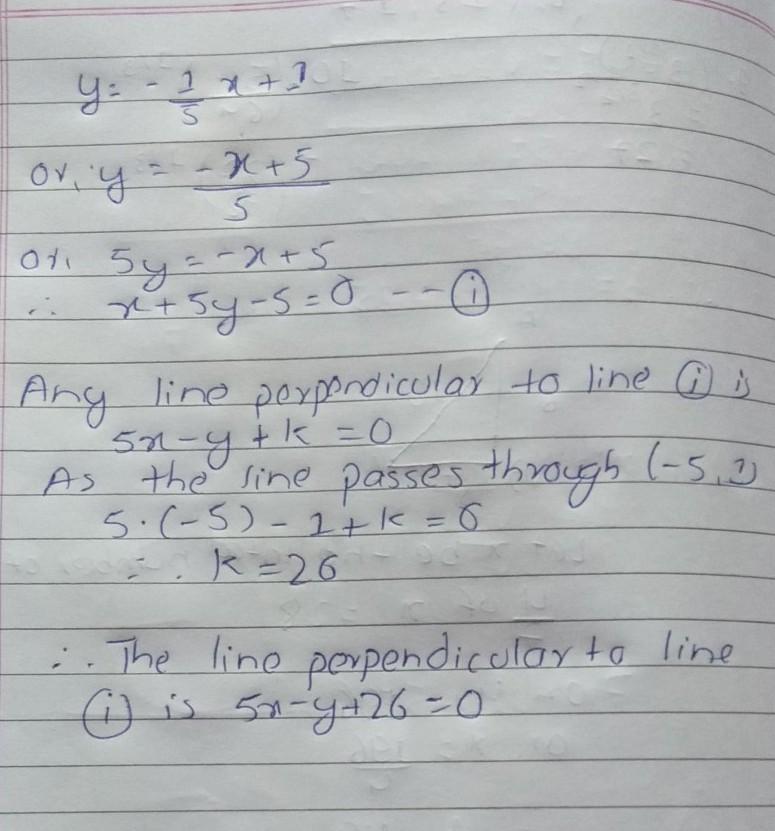 y = - 1/5 x + 1
or, y = -x + 5 / 5
or, 5y = -x + 5
∴ x + 5y - 5 = 0 --- (i)
Any line perpendicular to line (i) is
5x - y + k = 0
As the line passes through (-5, 1)
5·(-5) - 1 + k = 0
∴ k = 26
∴ The line perpendicular to line
(i) is 5x - y + 26 = 0